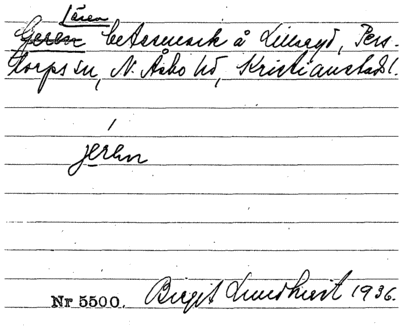 Lären
Geren betesmark å Lillaryd, Pers-
torps sn, N. Åsbo hd, Kristianstads l.
jeren
Nr 5500. Birgit Lundkvist 1936.